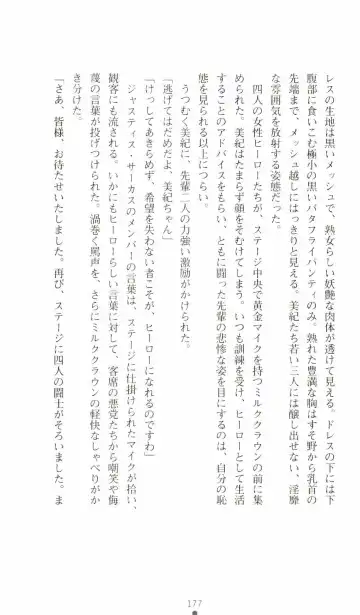 レスの生地は黒いメッシュで、熟女らしい妖艶な肉体が透けて見える。ドレスの下には下
腹部に食いこむ極小の黒いバタフライパンティのみ。熟れた豊満な胸はすそ野から乳首の
先端まで、メッシュ越しにはっきりと見える。美紀たち若い三人には醸し出せない、淫靡
な雰囲気を放射する姿態だった。
四人の女性ヒーローたちが、ステージ中央で黄金マイクを持つミルククラウンの前に集
められた。美紀はたまらず顔をそむけてしまう。いつも訓練を受け、ヒーローとして生活
することのアドバイスをもらい、ともに闘った先輩の悲惨な姿を目にするのは、自分の恥
態を見られる以上につらい。
うつむく美紀に、先輩二人の力強い激励がかけられた。
「逃げてはだめだよ、美紀ちゃん」
「けっしてあきらめず、希望を失わない者こそが、ヒーローになれるのですわ」
ジャスティス・サーカスのメンバーの言葉は、ステージに仕掛けられたマイクが拾い、
観客にも流される。いかにもヒーローらしい言葉に対して、客席の悪党たちから嘲笑と侮
蔑の言葉が投げつけられた。渦巻く罵声を、さらにミルククラウンの軽快なしゃべりがか
き分けた。
「さあ、皆様、お待たせいたしました。再び、ステージに四人の闘士がそろいました。ま
177